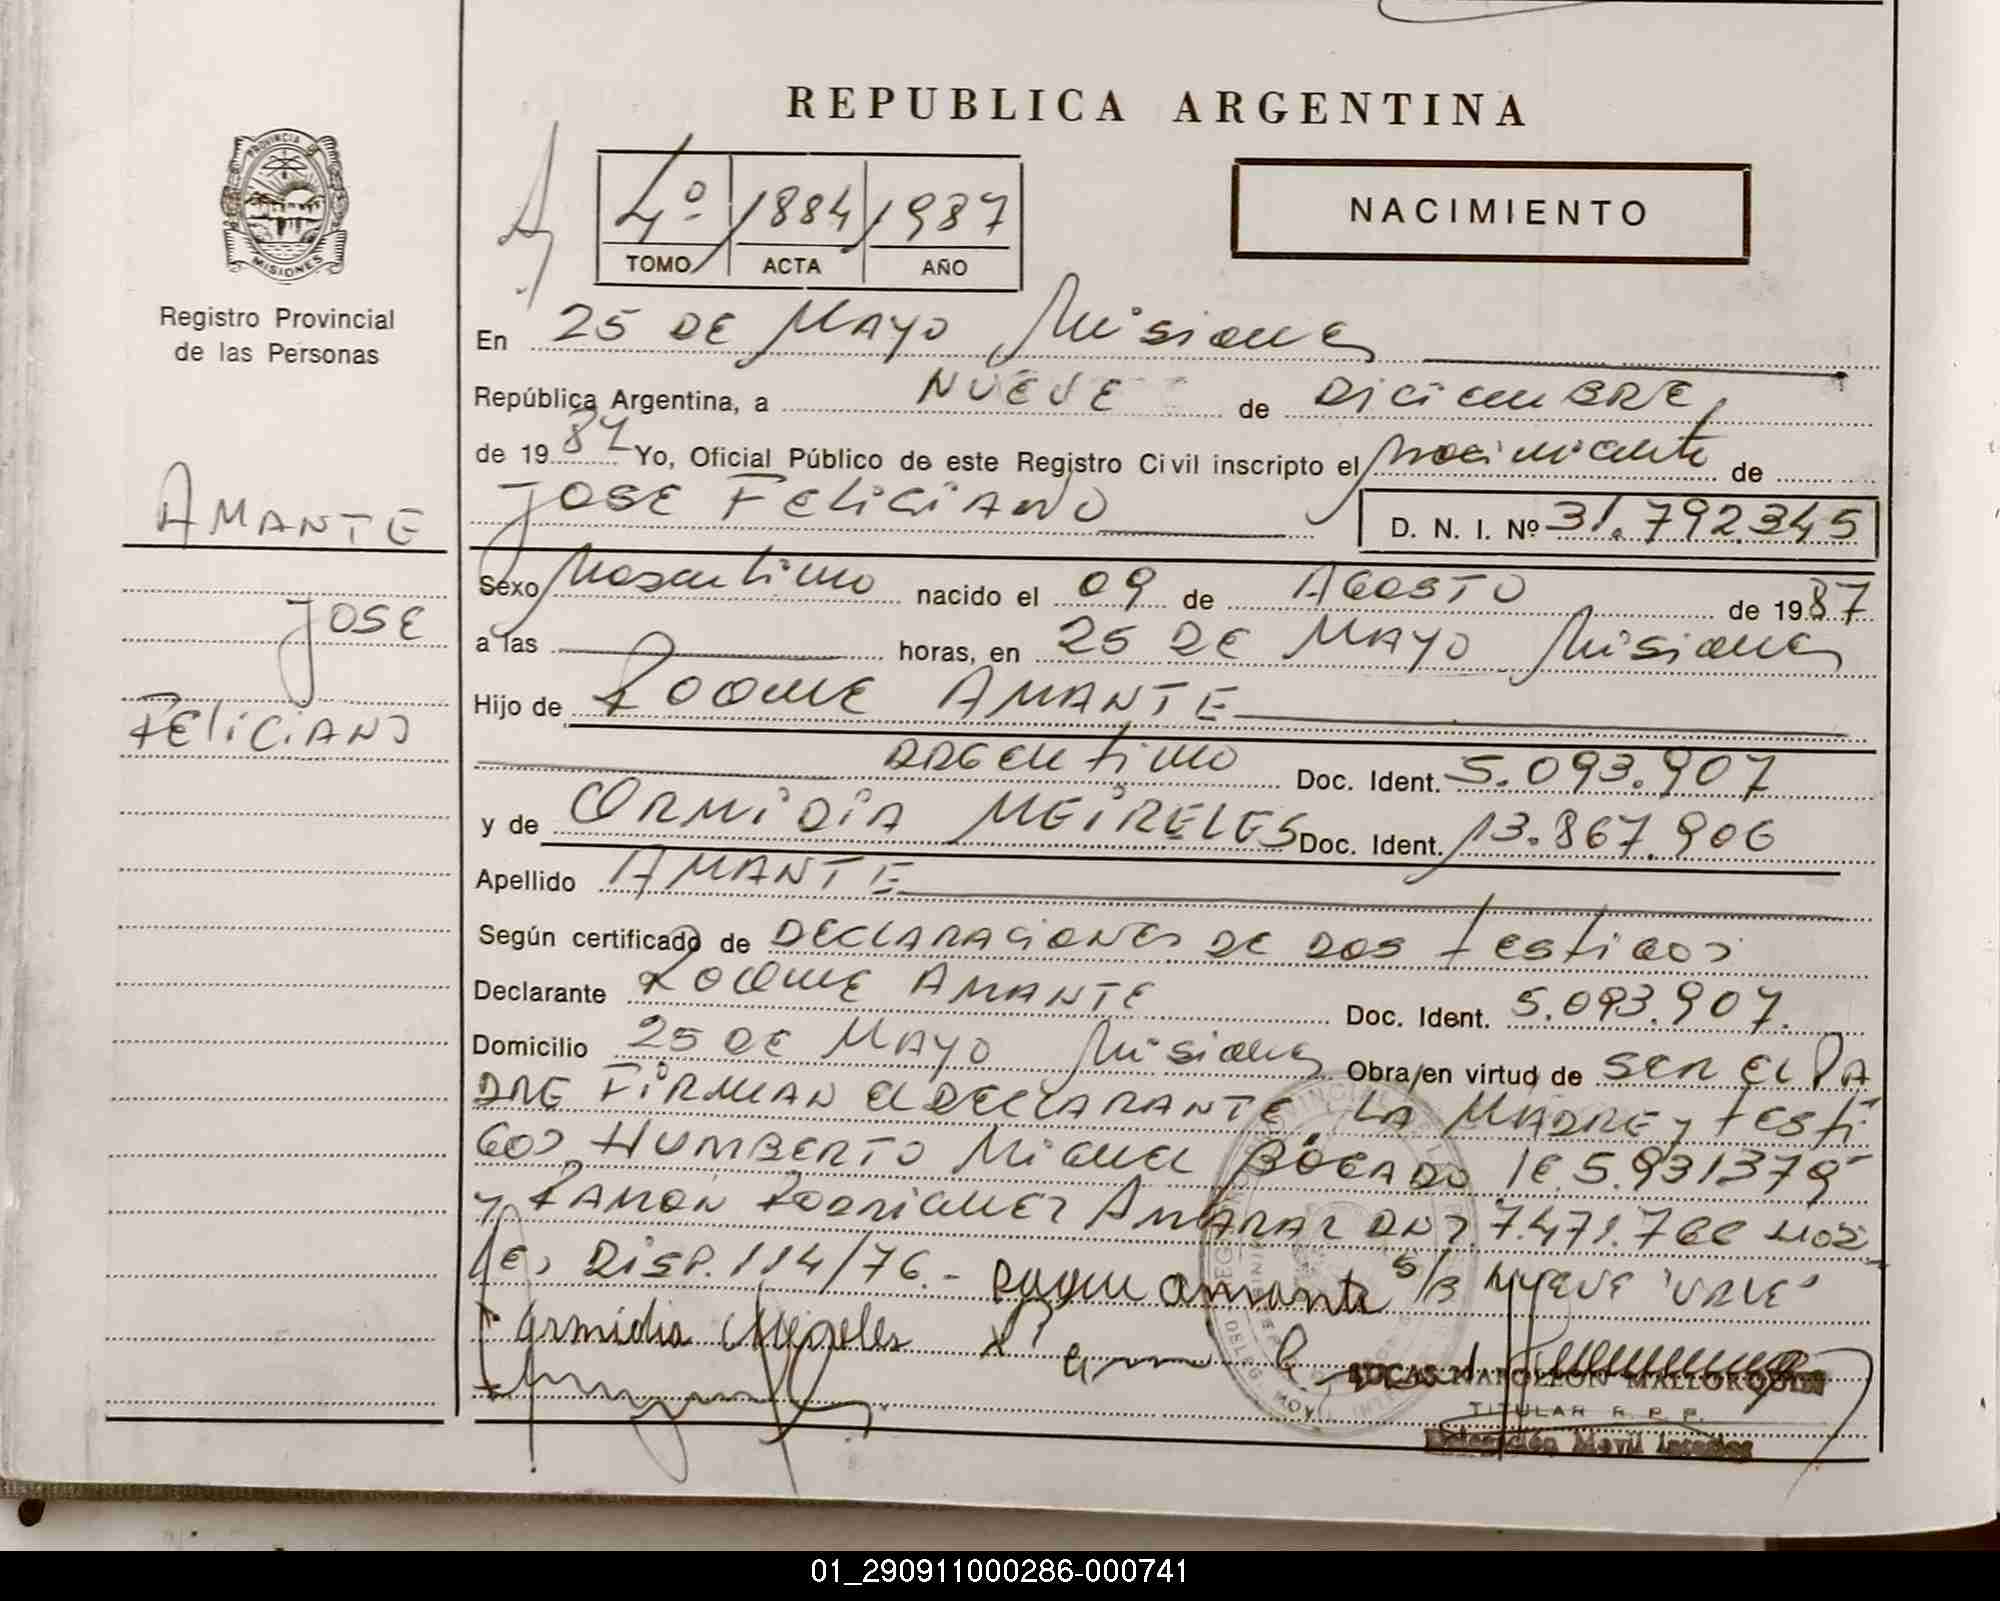 REPUBLICA ARGENTINA
PROVINCIA DE
MISIONES
Registro Provincial
de las Personas
4º 1884 1987
TOMO ACTA AÑO
NACIMIENTO
En 25 DE MAYO, Misiones
República Argentina, a NUEVE de DiCiemBRE,
de 1987 Yo, Oficial Público de este Registro Civil inscripto el nacimiento de
JOSE FELiCiANO D. N. I. Nº 31.792.345
AMANTE
JOSE
FELiCiANO
Sexo Masculino nacido el 09 de AGOSTO de 1987
a las horas, en 25 DE MAYO Misiones
Hijo de ROQUE AMANTE
ARGENtiNO Doc. Ident. 5.093.907
y de ORMiDiA MEiRELES Doc. Ident. 13.867.906
Apellido AMANTE
Según certificado de DECLARACiONES DE DOS testigos
Declarante ROQUE AMANTE Doc. Ident. 5.093.907.
Domicilio 25 DE MAYO Misiones Obra en virtud de SER EL PA
DRE FiRMAN El DECLARANTE, LA MADRE y testi
GOS HUMBERTO MiGUEL BOGADO lE. 5.931379
y RAMON RODRiGUEZ AMARAL DNI. 7.471.766
DiSP. 114/76.- Roque amante S/B NUEVE 'VALE'
Ormidia Meireles
NAPOLEON MALLORQUIN
TITULAR R. P. P.
Delegación Movil
01_290911000286-000741